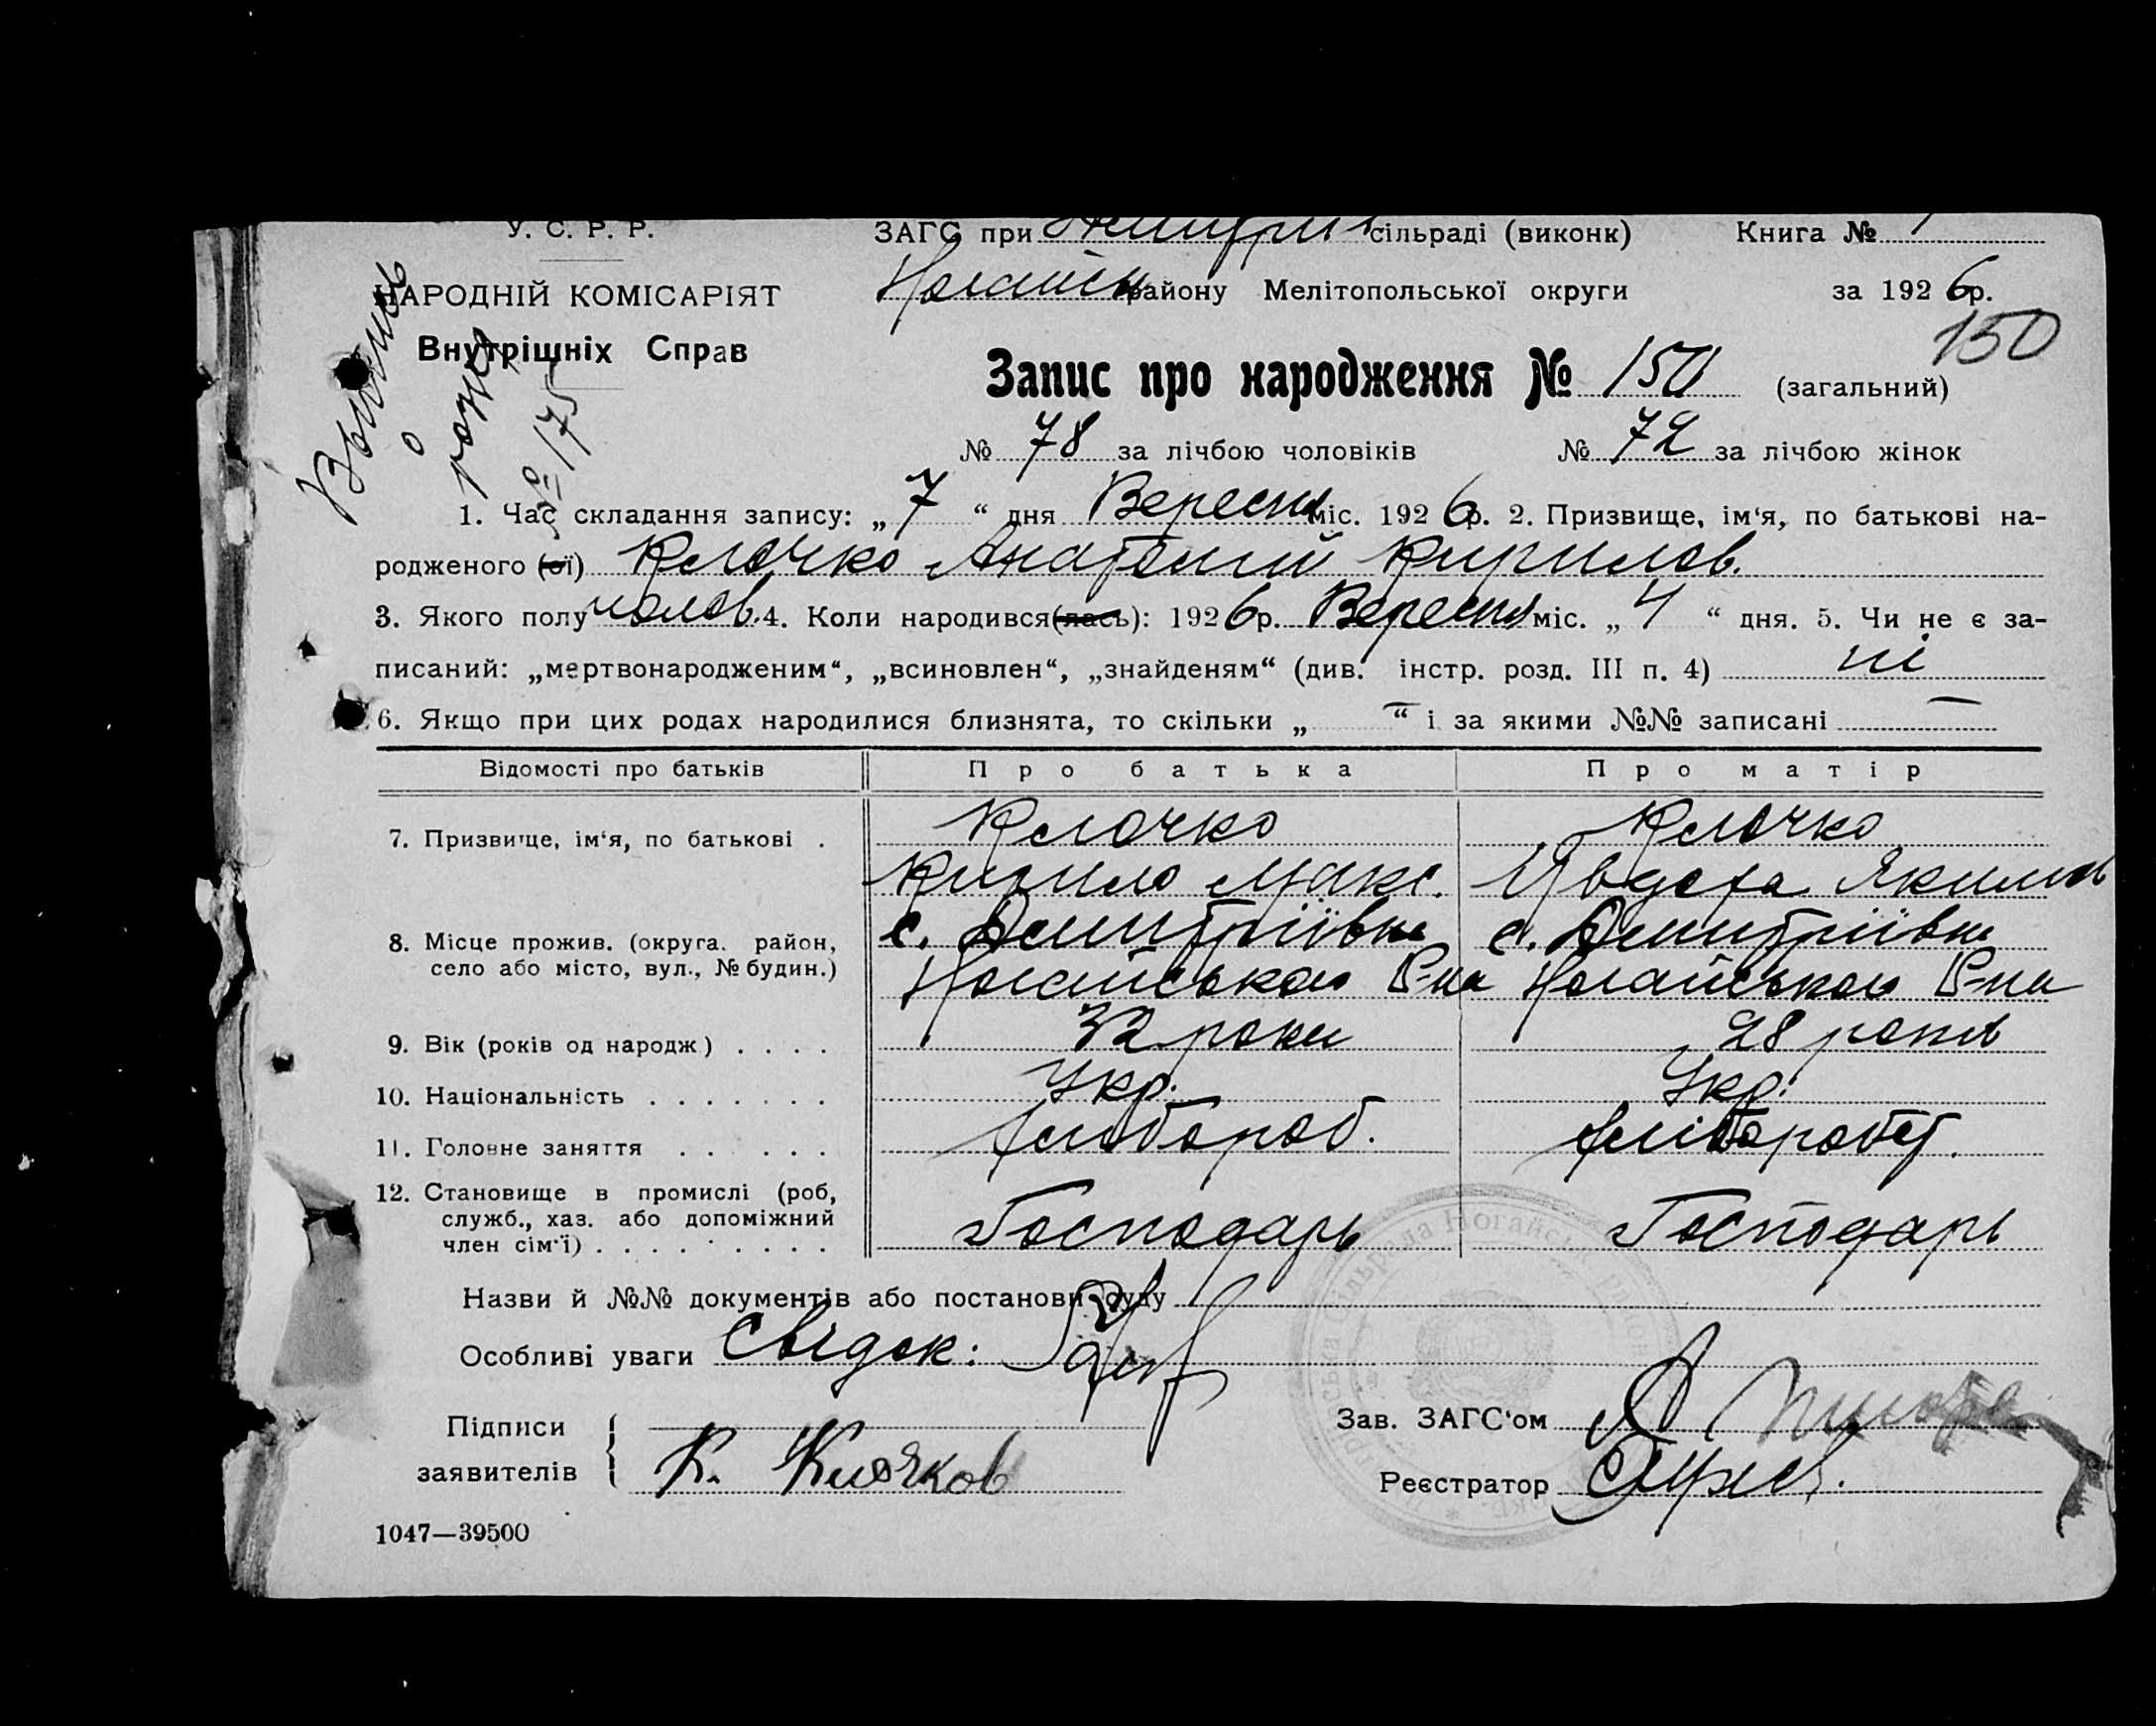 У. С. Р. Р.
НАРОДНІЙ КОМІСАРІЯТ
Внутрішніх Справ
ЗАГС при Дмитрів сільраді (виконк) Книга № 1
Ногайськ району Мелітопольської округи за 1926р.
150
Запис про народження № 150 (загальний)
№ 78 за лічбою чоловіків № 72 за лічбою жінок
о рожд
№ 175
1. Час складання запису: „7“ дня Вересня міс. 1926р. 2. Призвище, ім‘я, по батькові на-
родженого (ої) Клочко Анатолий Кирилов.
3. Якого полу чолов. 4. Коли народився(лась): 1926р. Вересня міс. „4“ дня. 5. Чи не є за-
писаний: „мертвонародженим“, „всиновлен“, „знайденям“ (див. інстр. розд. III п. 4) ні
6. Якщо при цих родах народилися близнята, то скільки „ — “ і за якими №№ записані —
Відомості про батьків Про батька Про матір
7. Призвище, ім‘я, по батькові . Клочко Клочко
Кирило Макс. Явдоха Якимов
8. Місце прожив. (округа. район, с. Дмитріівка с. Дмитріівка
село або місто, вул., № будин.) Ногайського Р-на Ногайського Р-на
9. Вік (років од народж) . . . . 32 роки 28 років
10. Національність . . . . . . . Укр. Укр.
11. Головне заняття . . . . . Хлібороб. Хлібороб.
12. Становище в промислі (роб,
служб., хаз. або допоміжний Господарь Господарь
член сім‘ї) . . . . . . . . .
Назви й №№ документів або постанови суду
Особливі уваги Свідок:
Підписи
заявителів К. Клочков
Зав. ЗАГС‘ом
Реєстратор
1047—39500